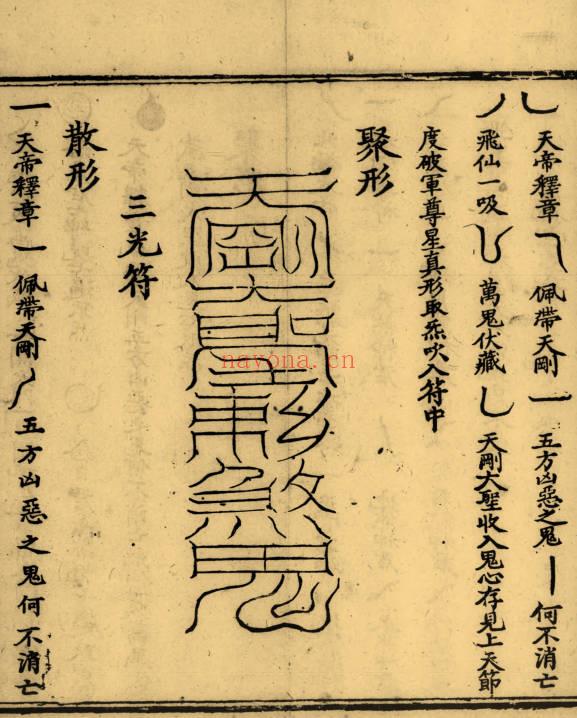 天帝釋章 佩帶天剛 五方凶惡之鬼 何不消亡
飛仙一吸 萬鬼伏藏 天剛大聖收入鬼心存見上天節
度破軍尊星真形取炁吹入符中
聚形
三光符
散形
天帝釋章 佩帶天剛 五方凶惡之鬼何不消亡
nayona.cn